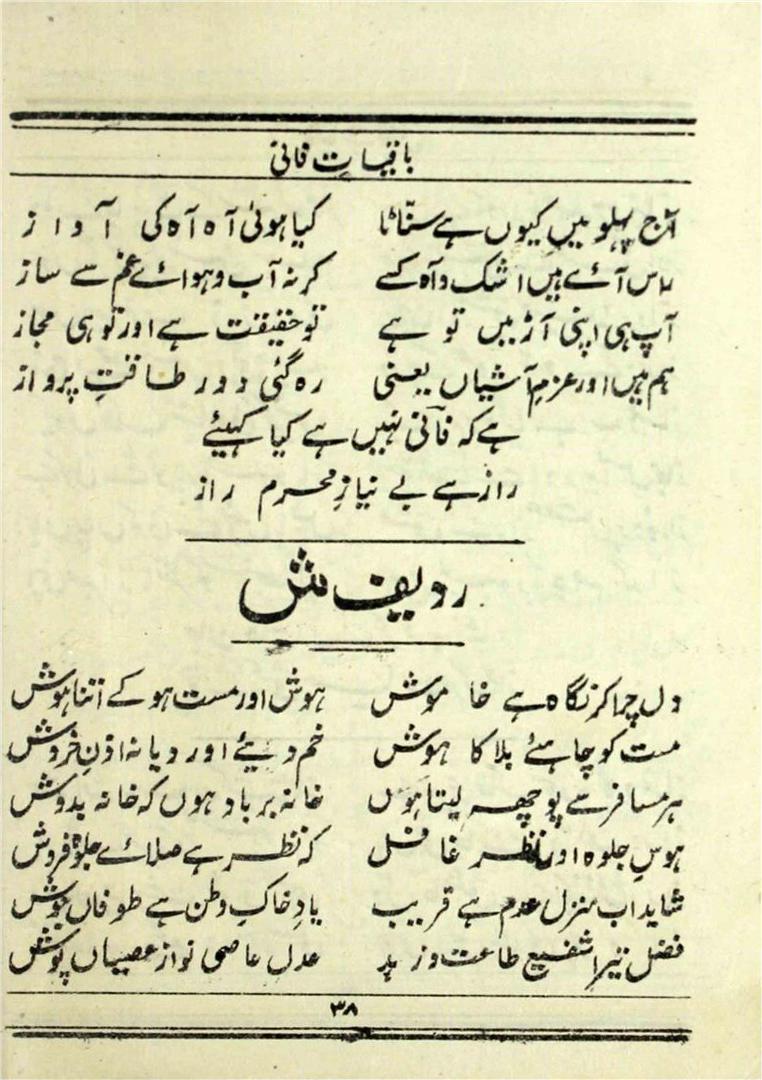 باقیاتِ فانی
آج پہلو میں کیوں ہے سنّاٹا کیا ہوئی آہ آہ کی آواز
راس آئے ہیں اشک و آہ کسے کر نہ آب و ہوائے غم سے ساز
آپ ہی اپنی آڑ میں تو ہے تو حقیقت ہے اور تو ہی مجاز
ہم ہیں اور عزمِ آشیاں یعنی رہ گئی دور طاقتِ پرواز
ہے کہ فانی نہیں ہے کیا کہیئے
راز ہے بے نیازِ محرم راز
ردیف ش
دل چرا کر نگاہ ہے خاموش ہوش اور مست ہو کے اتنا ہوش
مست کو چاہئے بلا کا ہوش خم دیئے اور دیا نہ اذنِ فروش
ہر مسافر سے پوچھ لیتا ہوں خانہ برباد ہوں کہ خانہ بدوش
ہوسِ جلوہ اور نظر غافل کہ نظر ہے صلائے جلوہ فروش
شاید اب منزلِ عدم ہے قریب یادِ خاکِ وطن ہے طوفاں جوش
فضل تیرا شفیع طاعت و زہد عدل عاصی نواز عصیاں پوش
۳۸